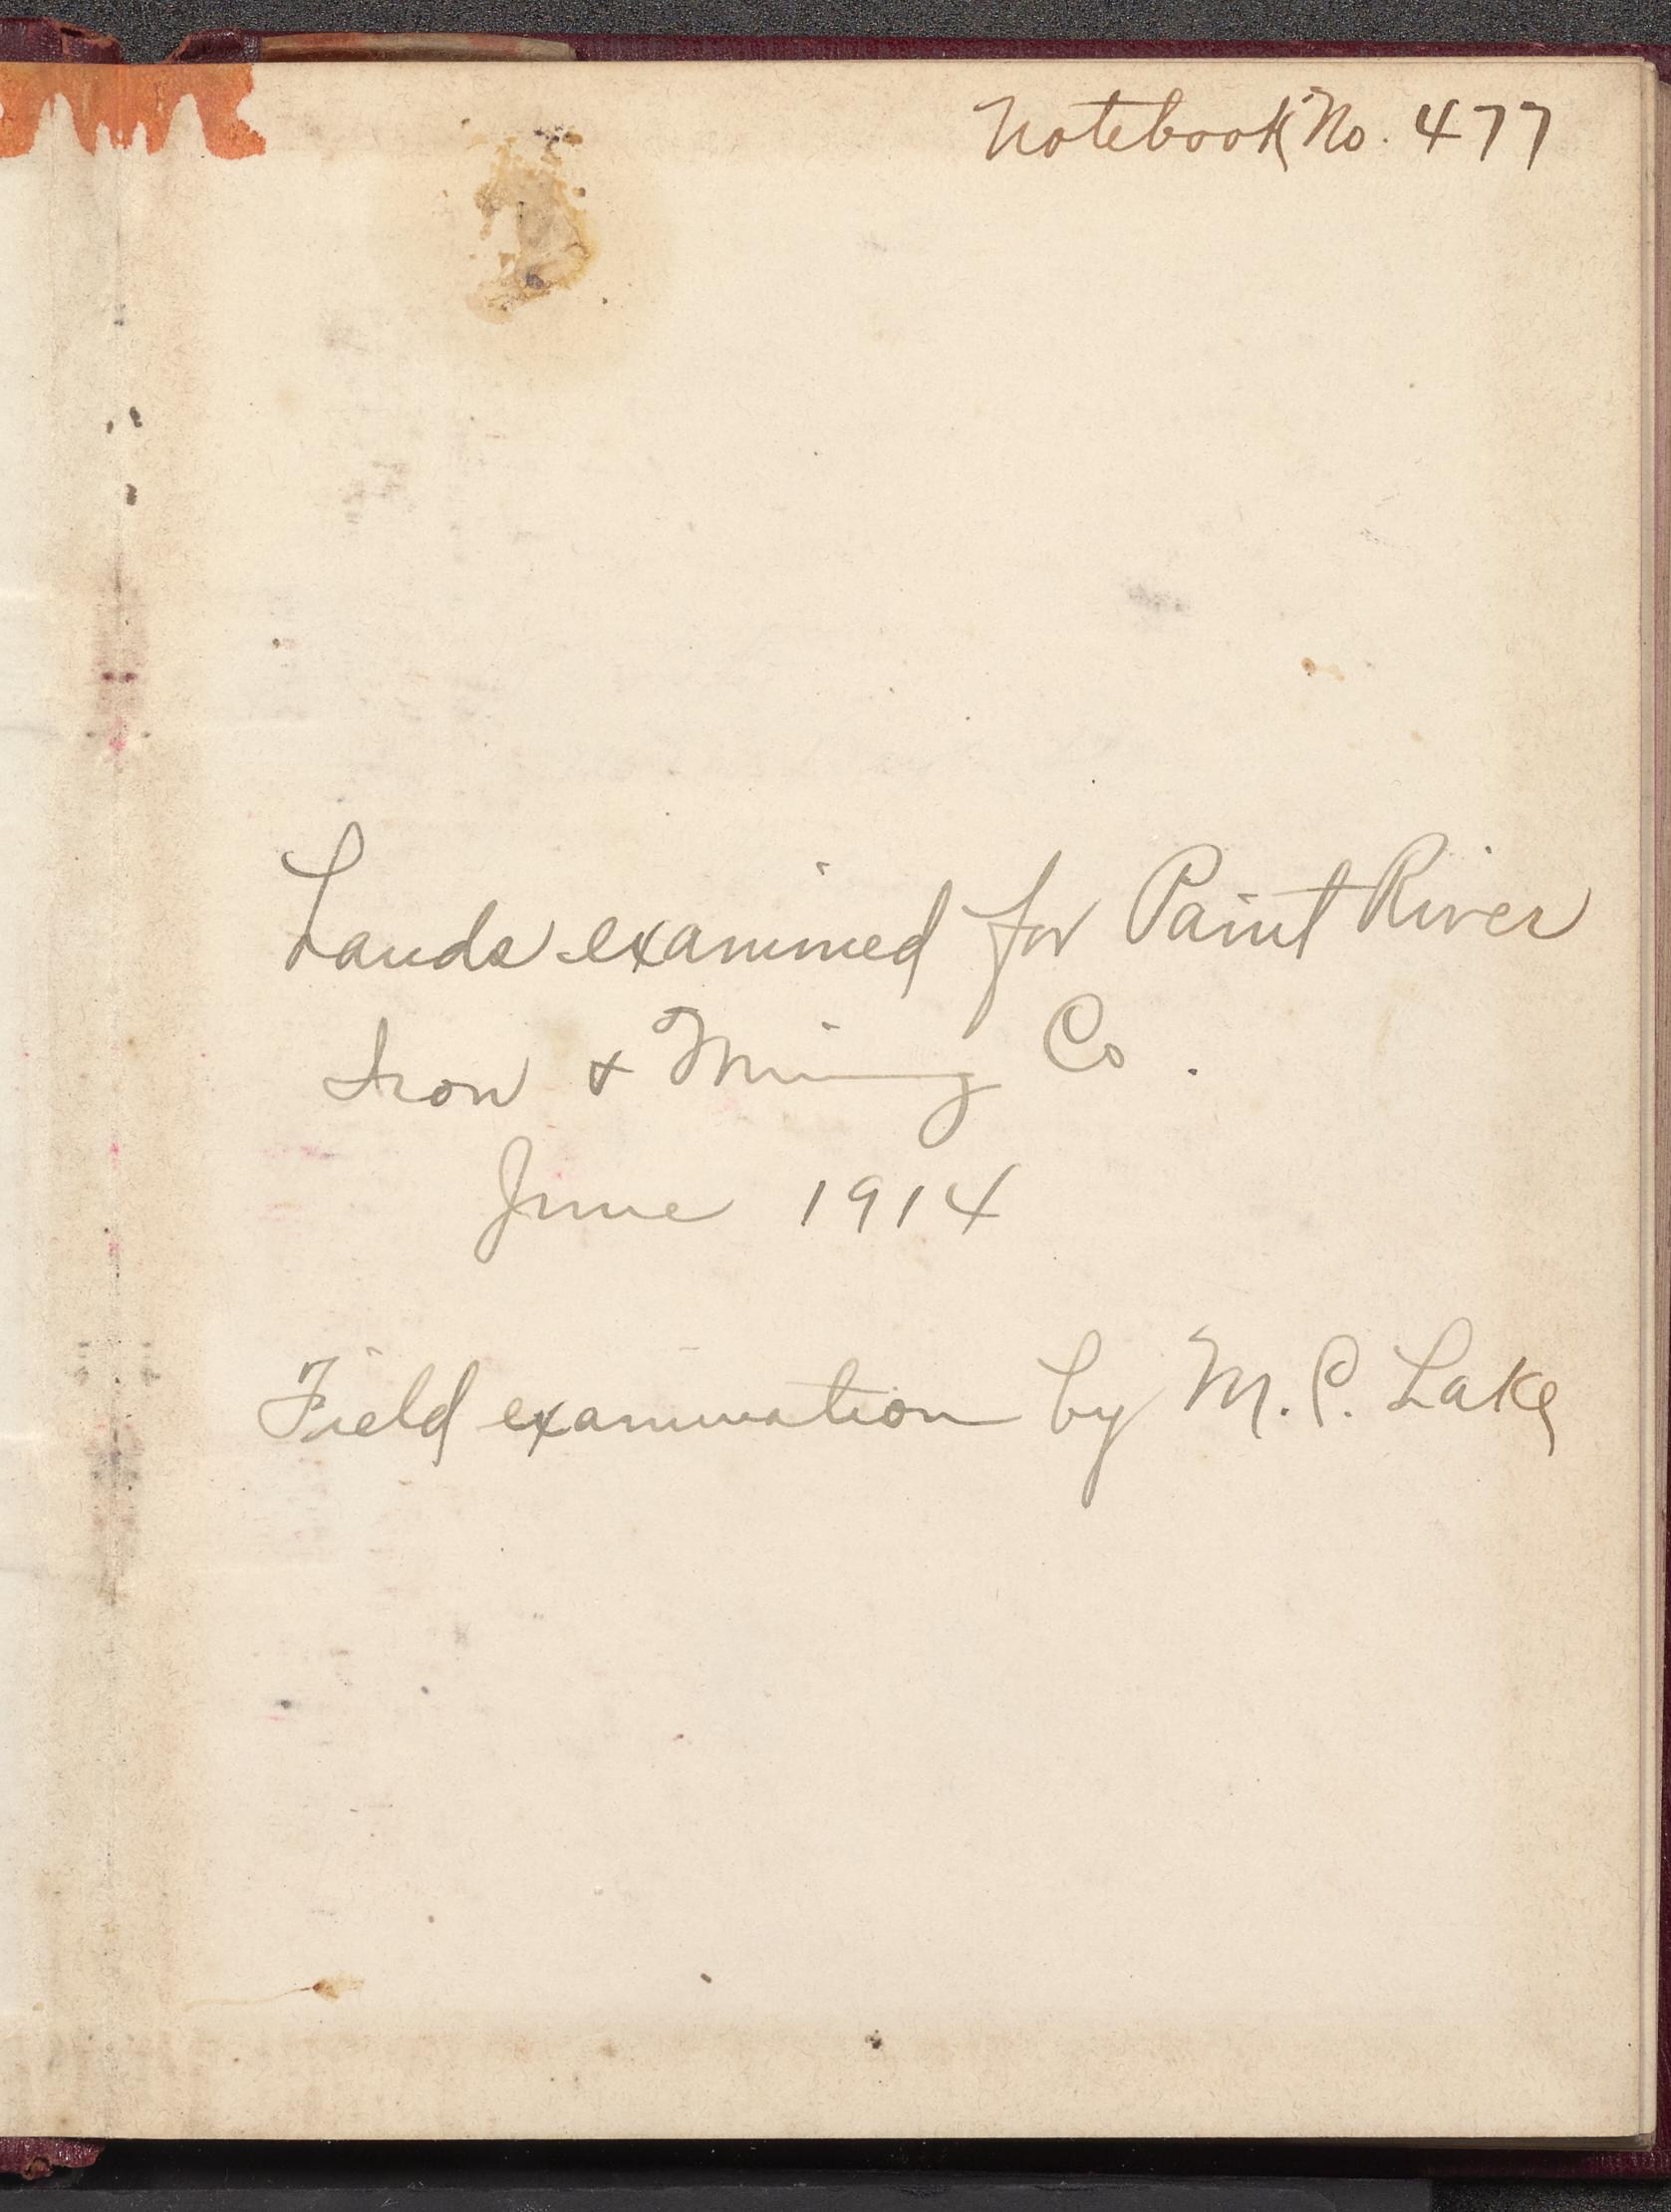 Notebook No. 477
Lands examined for Paint River
Iron & Mining Co.
June 1914
Field examination by M. C. Lake